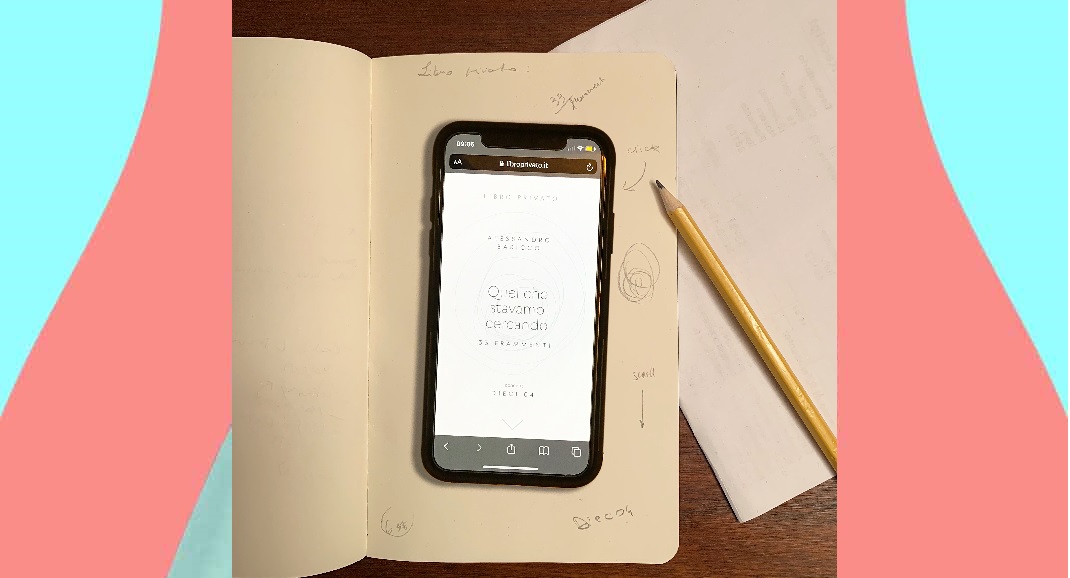 Libro privato:
33 frammenti
09:06
AA libroprivato.it
LIBRO PRIVATO
ALESSANDRO
BARICCO
Quel che
stavamo
cercando
33 FRAMMENTI
DIECI 04
scroll
Dieci04